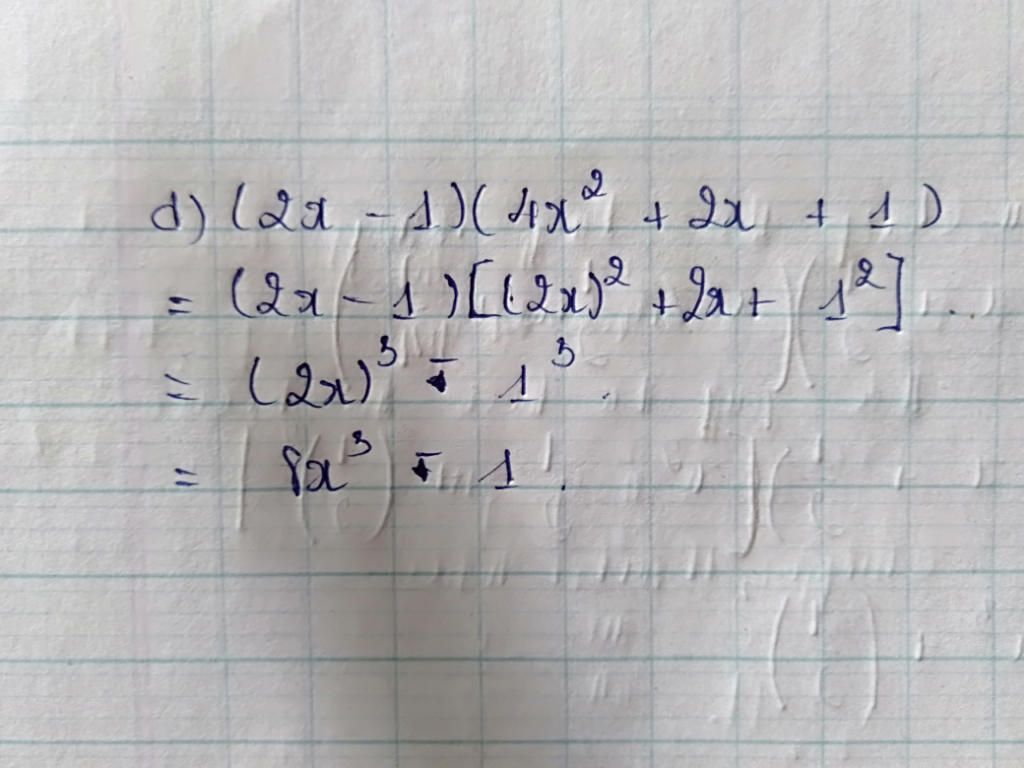 d) (2x - 1)(4x² + 2x + 1)
= (2x - 1)[(2x)² + 2x + 1²]
= (2x)³ - 1³.
= 8x³ - 1.